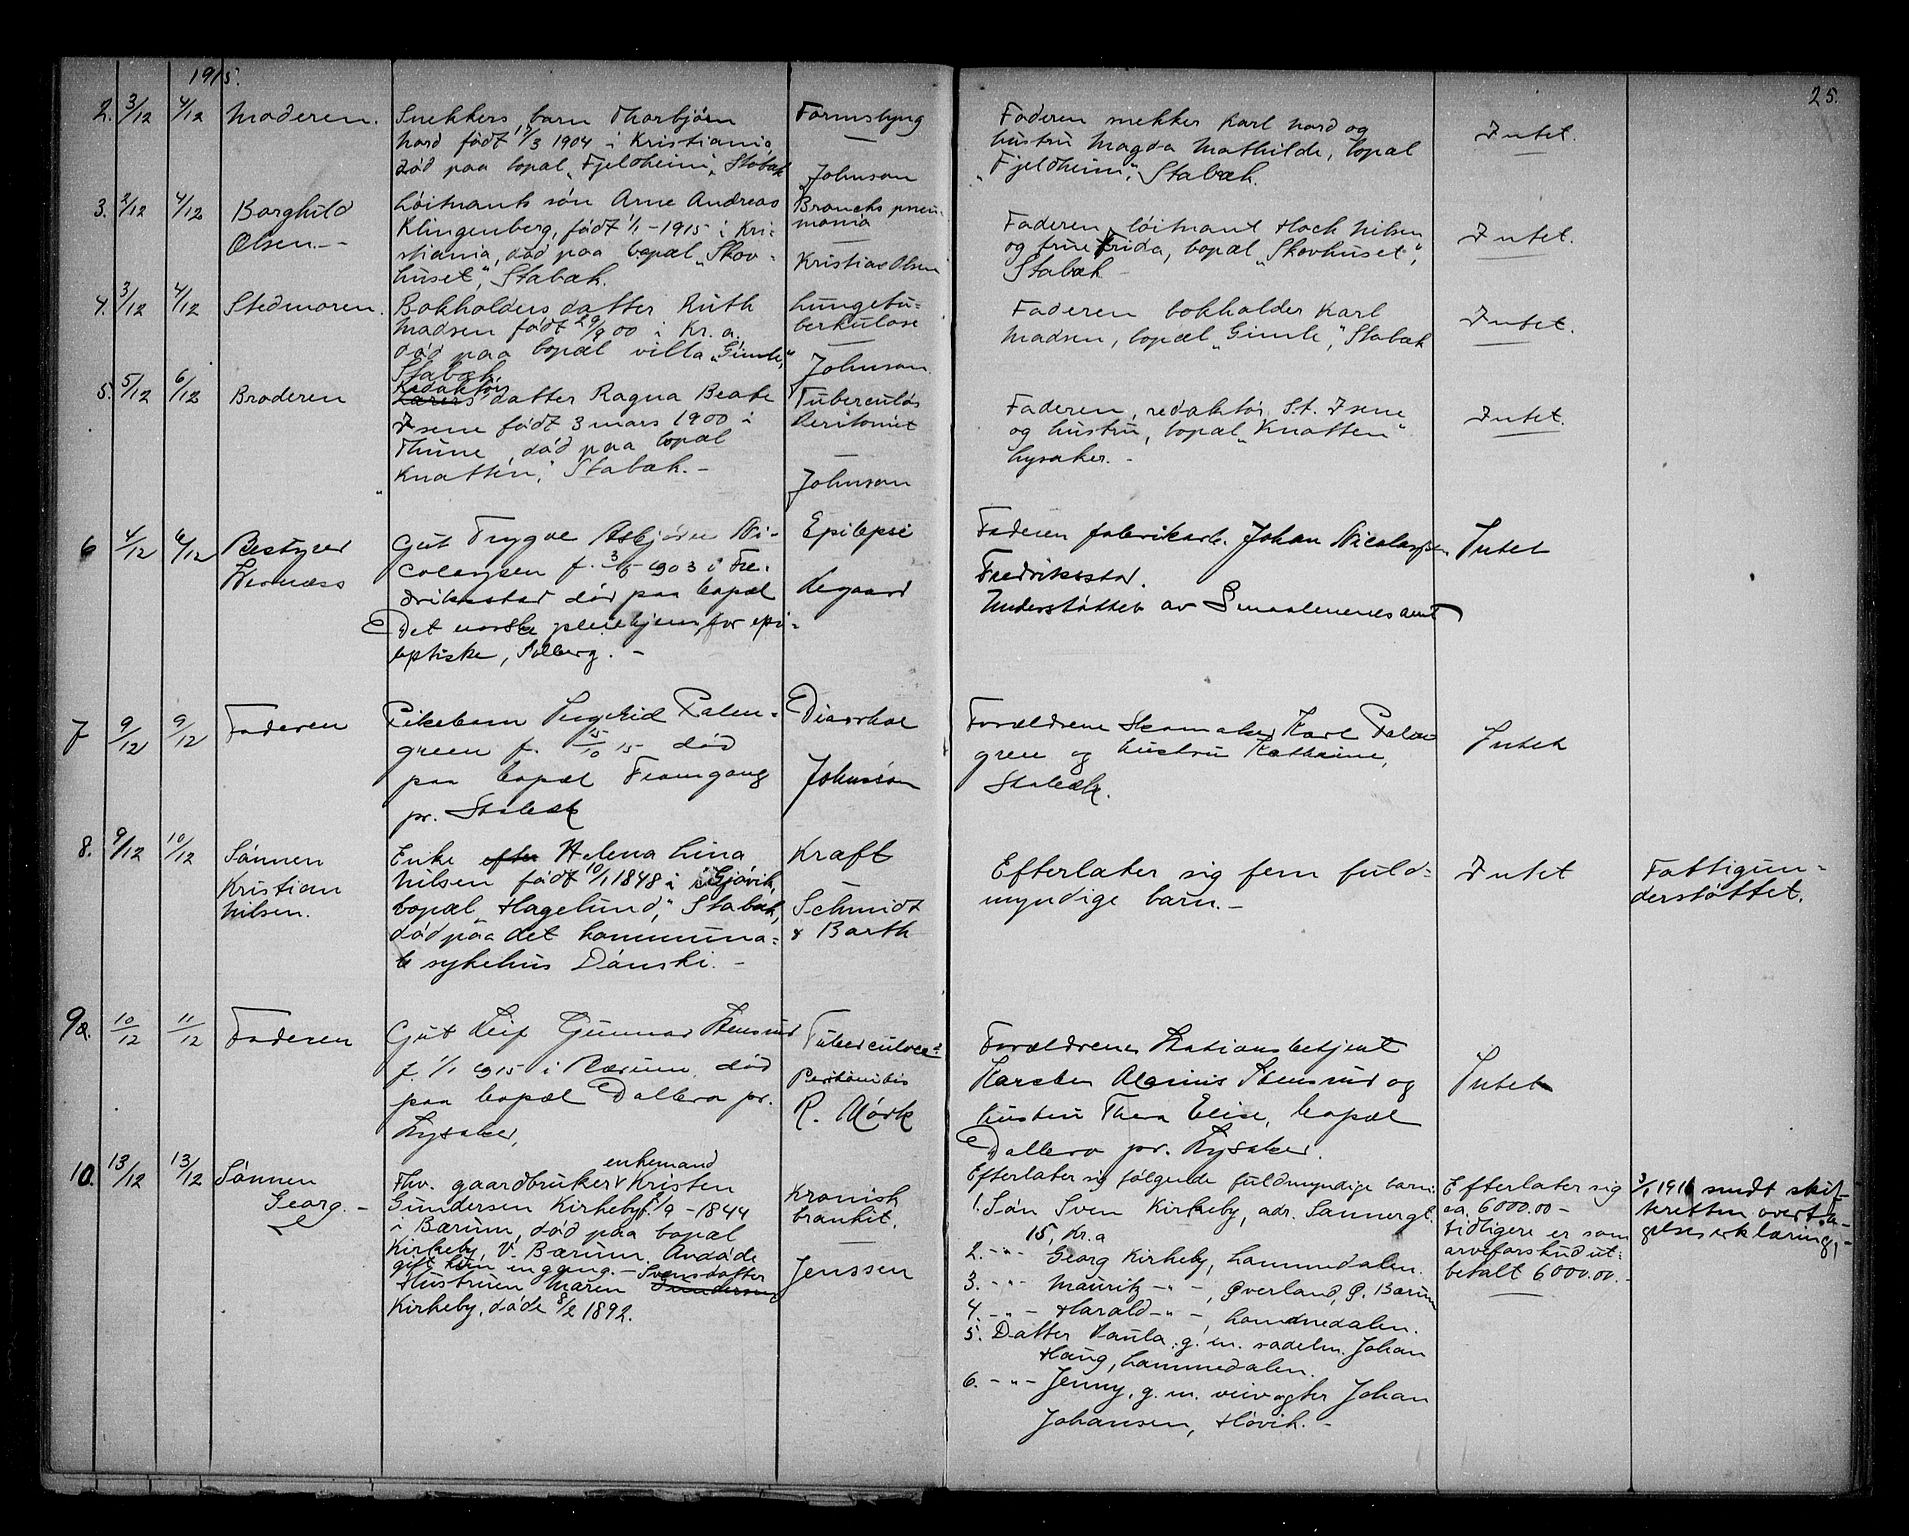 1915.
25.
2. 3/12 4/12 Moderen.
Snekkers barn Thorbjørn
Nord født 17/3 1904 i Kristiania,
død paa bopæl „Fjeldheim", Stabæk
Tarmslyng
Johnson
Faderen snekker Karl Nord og
hustru Magda Mathilde, bopæl
„Fjeldheim", Stabæk.
Intet.
3. 2/12 4/12 Borghild
Olsen.
Løitnants søn Arne Andreas
Klingenberg, født 1/1 - 1915 i Kri-
stiania, død paa bopæl „Skov-
huset", Stabæk.
Bronchs pneu-
monia
Kristian Olsen
Faderen, løitnant Hoch Nilsen
og frue Frida, bopæl „Skovhuset",
Stabæk
Intet.
4. 3/12 4/12 Stedmoren.
Bokholders datter Ruth
Madsen født 29/9 00 i Kr.a.
død paa bopæl villa „Gimle",
Stabæk.
Lungetu-
berkulose
Johnson.
Faderen bokholder Karl
Madsen, bopæl „Gimle", Stabæk
Intet.
5. 5/12 6/12 Broderen
Redaktørs
Lærers datter Ragna Beate
Isene født 3 mars 1900 i
Thune, død paa bopæl
„Knatten", Stabæk. -
Tuberculøs
Peritonit
Johnson
Faderen, redaktør St. Isene
og hustru, bopæl „Knatten"
Lysaker. -
Intet.
6 4/12 6/12 Bestyrer
Wernæss
Gut Trygve Asbjørn Ni-
colaysen f. 3/5 1903 i Fre-
drikstad død paa bopæl
Det norske pleiehjem for epi-
leptiske, Solberg. -
Epilepsi
Aegaard
Faderen fabrikarb. Johan Nicolaysen
Fredriksstad.
Understøttet av Smaalenenes amt
Intet
7 9/12 9/12 Faderen
Pikebarn Ingerid Palm-
green f. 15 død
paa bopæl Framgang
pr. Stabæk
Diarrhoe
Johnson
Forældrene Skomaker Karl Palm
gren og hustru Kathrine,
Stabæk.
Intet
8. 9/12 10/12 Sønnen
Kristian
Nilsen.
Enke efter Helena Lina
Nilsen født 10/1 1848 i Gjøvik,
bopæl „Hagelund", Stabæk,
død paa det kommuna-
le sykehus Dønski. -
Kræft
Schmidt
& Barth
Efterlater sig fem fuld-
myndige barn. -
Intet
Fattigun-
derstøttet.
9a. 10/12 11/12 Faderen
Gut Leif Gunnar Stensrud
f. 1/1 1915 i Bærum, død
paa bopæl Dallero pr.
Lysaker,
Tuberculose
Peritonitis
R. Mørk
Forældrene Stationsbetjent
Karsten Stensrud og
hustru Thea Elise, bopæl
Dallero pr. Lysaker.
Intet
10. 13/12 13/12 Sønnen
Georg. -
enkemand
Fhv. gaardbruker Kristen
Gundersen Kirkeby f. 1/9 - 1844
i Bærum, død paa bopæl
Kirkeby, V. Bærum. Avdøde
gift kun en gang. - Svensdatter
Hustruen Maren Gundersen
Kirkeby, døde 8/2 1892.
Kronisk
bronkit.
Jenssen
Efterlater sig følgende fuldmyndige barn:
1. Søn Sven Kirkeby, adr. Sannergt.
15, Kr.a
2. -"- Georg Kirkeby, Lommedalen.
3. -"- Mauritz -"-, Øverland, Ø. Bærum
4. -"- Harald -"-, Lommedalen.
5. Datter Paula, g. m. sadelm. Johan
Haug, Lommedalen.
6. -"- Jenny, g. m. veivogter Johan
Johansen, Høvik. -
Efterlater sig
ca. 6000.00 -
tidligere er som
arveforskud ut-
betalt 6000.00. -
3/1 1916 sendt skif-
teretten overta-
gelseserklæring, -